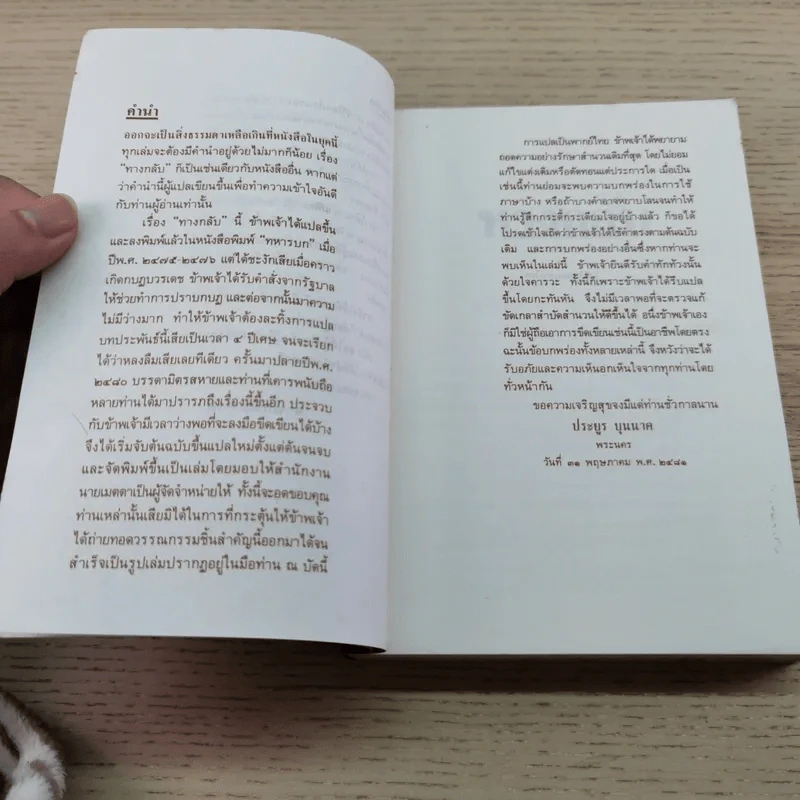 คำนำ
ออกจะเป็นสิ่งธรรมดาเหลือเกินที่หนังสือในยุคนี้
ทุกเล่มจะต้องมีคำนำอยู่ด้วยไม่มากก็น้อย เรื่อง
"ทางกลับ" ก็เป็นเช่นเดียวกับหนังสืออื่น หากแต่
ว่าคำนำนี้ผู้แปลเขียนขึ้นเพื่อทำความเข้าใจอันดี
กับท่านผู้อ่านเท่านั้น
เรื่อง "ทางกลับ" นี้ ข้าพเจ้าได้แปลขึ้น
และลงพิมพ์แล้วในหนังสือพิมพ์ "ทหารบก" เมื่อ
ปีพ.ศ. ๒๔๗๕-๒๔๗๖ แต่ได้ชะงักเสียเมื่อคราว
เกิดกบฏบวรเดช ข้าพเจ้าได้รับคำสั่งจากรัฐบาล
ให้ช่วยทำการปราบกบฏ และต่อจากนั้นมาความ
ไม่มีว่างมาก ทำให้ข้าพเจ้าต้องละทิ้งการแปล
บทประพันธ์นี้เสียเป็นเวลา ๔ ปีเศษ จนจะเรียก
ได้ว่าหลงลืมเสียเลยทีเดียว ครั้นมาปลายปีพ.ศ.
๒๔๘๐ บรรดามิตรสหายและท่านที่เคารพนับถือ
หลายท่านได้มาปรารภถึงเรื่องนี้ขึ้นอีก ประจวบ
กับข้าพเจ้ามีเวลาว่างพอที่จะลงมือขีดเขียนได้บ้าง
จึงได้เริ่มจับต้นฉบับขึ้นแปลใหม่ตั้งแต่ต้นจนจบ
และจัดพิมพ์ขึ้นเป็นเล่มโดยมอบให้สำนักงาน
นายเมตตาเป็นผู้จัดจำหน่ายให้ ทั้งนี้จะอดขอบคุณ
ท่านเหล่านั้นเสียมิได้ในการที่กระตุ้นให้ข้าพเจ้า
ได้ถ่ายทอดวรรณกรรมชิ้นสำคัญนี้ออกมาได้จน
สำเร็จเป็นรูปเล่มปรากฏอยู่ในมือท่าน ณ บัดนี้
การแปลเป็นพากย์ไทย ข้าพเจ้าได้พยายาม
ถอดความอย่างรักษาสำนวนเดิมที่สุด โดยไม่ยอม
แก้ไขแต่งเติมหรือตัดทอนแต่ประการใด เมื่อเป็น
เช่นนี้ท่านย่อมจะพบความบกพร่องในการใช้
ภาษาบ้าง หรือถ้าบางคำอาจหยาบโลนจนทำให้
ท่านรู้สึกกระดิ์กระเดียมใจอยู่บ้างแล้ว ก็ขอได้
โปรดเข้าใจเถิดว่าข้าพเจ้าได้ใช้คำตรงตามต้นฉบับ
เดิม และการบกพร่องอย่างอื่นซึ่งหากท่านจะ
พบเห็นในเล่มนี้ ข้าพเจ้ายินดีรับคำทักท้วงนั้น
ด้วยใจคารวะ ทั้งนี้ก็เพราะข้าพเจ้าได้รีบแปล
ขึ้นโดยกะทันหัน จึงไม่มีเวลาพอที่จะตรวจแก้
ขัดเกลาสำบัดสำนวนให้ดีขึ้นได้ อนึ่งข้าพเจ้าเอง
ก็มิใช่ผู้ถือเอาการขีดเขียนเช่นนี้เป็นอาชีพโดยตรง
ฉะนั้นข้อบกพร่องทั้งหลายเหล่านี้ จึงหวังว่าจะได้
รับอภัยและความเห็นอกเห็นใจจากทุกท่านโดย
ทั่วหน้ากัน
ขอความเจริญสุขจงมีแด่ท่านชั่วกาลนาน
ประยูร บุนนาค
พระนคร
วันที่ ๓๑ พฤษภาคม พ.ศ. ๒๔๘๑